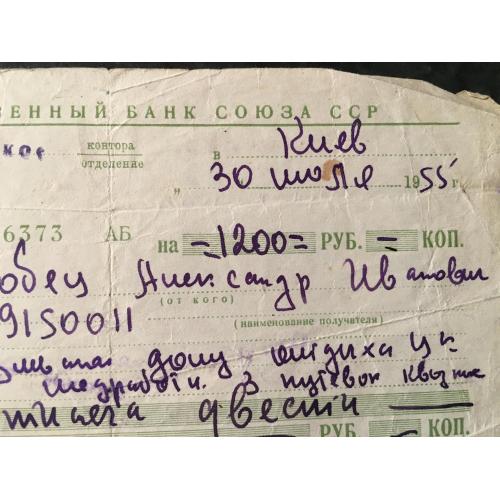 ВЕННЫЙ БАНК СОЮЗА ССР
кое контора в Киев
отделение
„ 30 июля 1955 г.
6373 АБ на =1200= РУБ. = КОП.
бец Александр Иванович
(от кого)
9150011
(наименование получателя)
дому
3 путевок
двести —
РУБ. КОП.